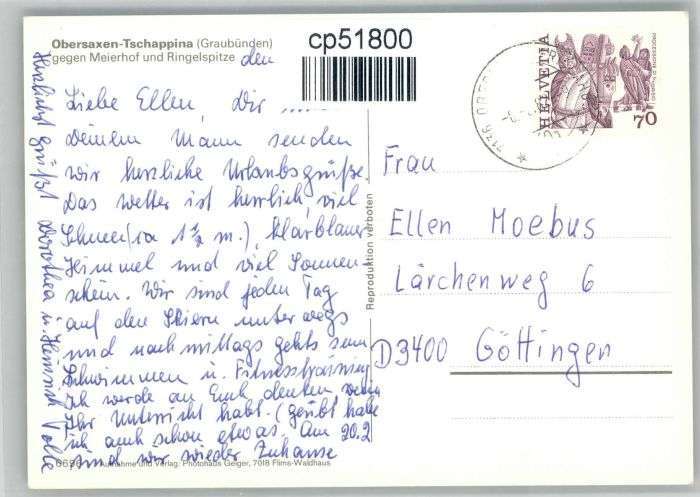 Obersaxen-Tschappina (Graubünden)
gegen Meierhof und Ringelspitze
den
cp51800
Liebe Ellen, Dir
Deinem Mann senden
wir herzliche Urlaubsgrüße.
Das Wetter ist herrlich, viel
Schnee (ca 1½ m.), klarblauer
Himmel und viel Sonnen-
schein. Wir sind jeden Tag
auf den Skiern unterwegs
und nachmittags gehts zum
Schwimmen u. Fitnesstraining
Ich werde an Euch denken wenn
Ihr Unterricht habt. (geübt habe
ich auch schon etwas. Am 20.2
sind wir wieder Zuhause
Herzlichst grüßt Dorothea u. Heinrich
Reproduktion verboten
HELVETIA
70
7134
Frau
Ellen Moebus
Lärchenweg 6
D3400 Göttingen
Aufnahme und Verlag: Photohaus Geiger, 7018 Flims-Waldhaus